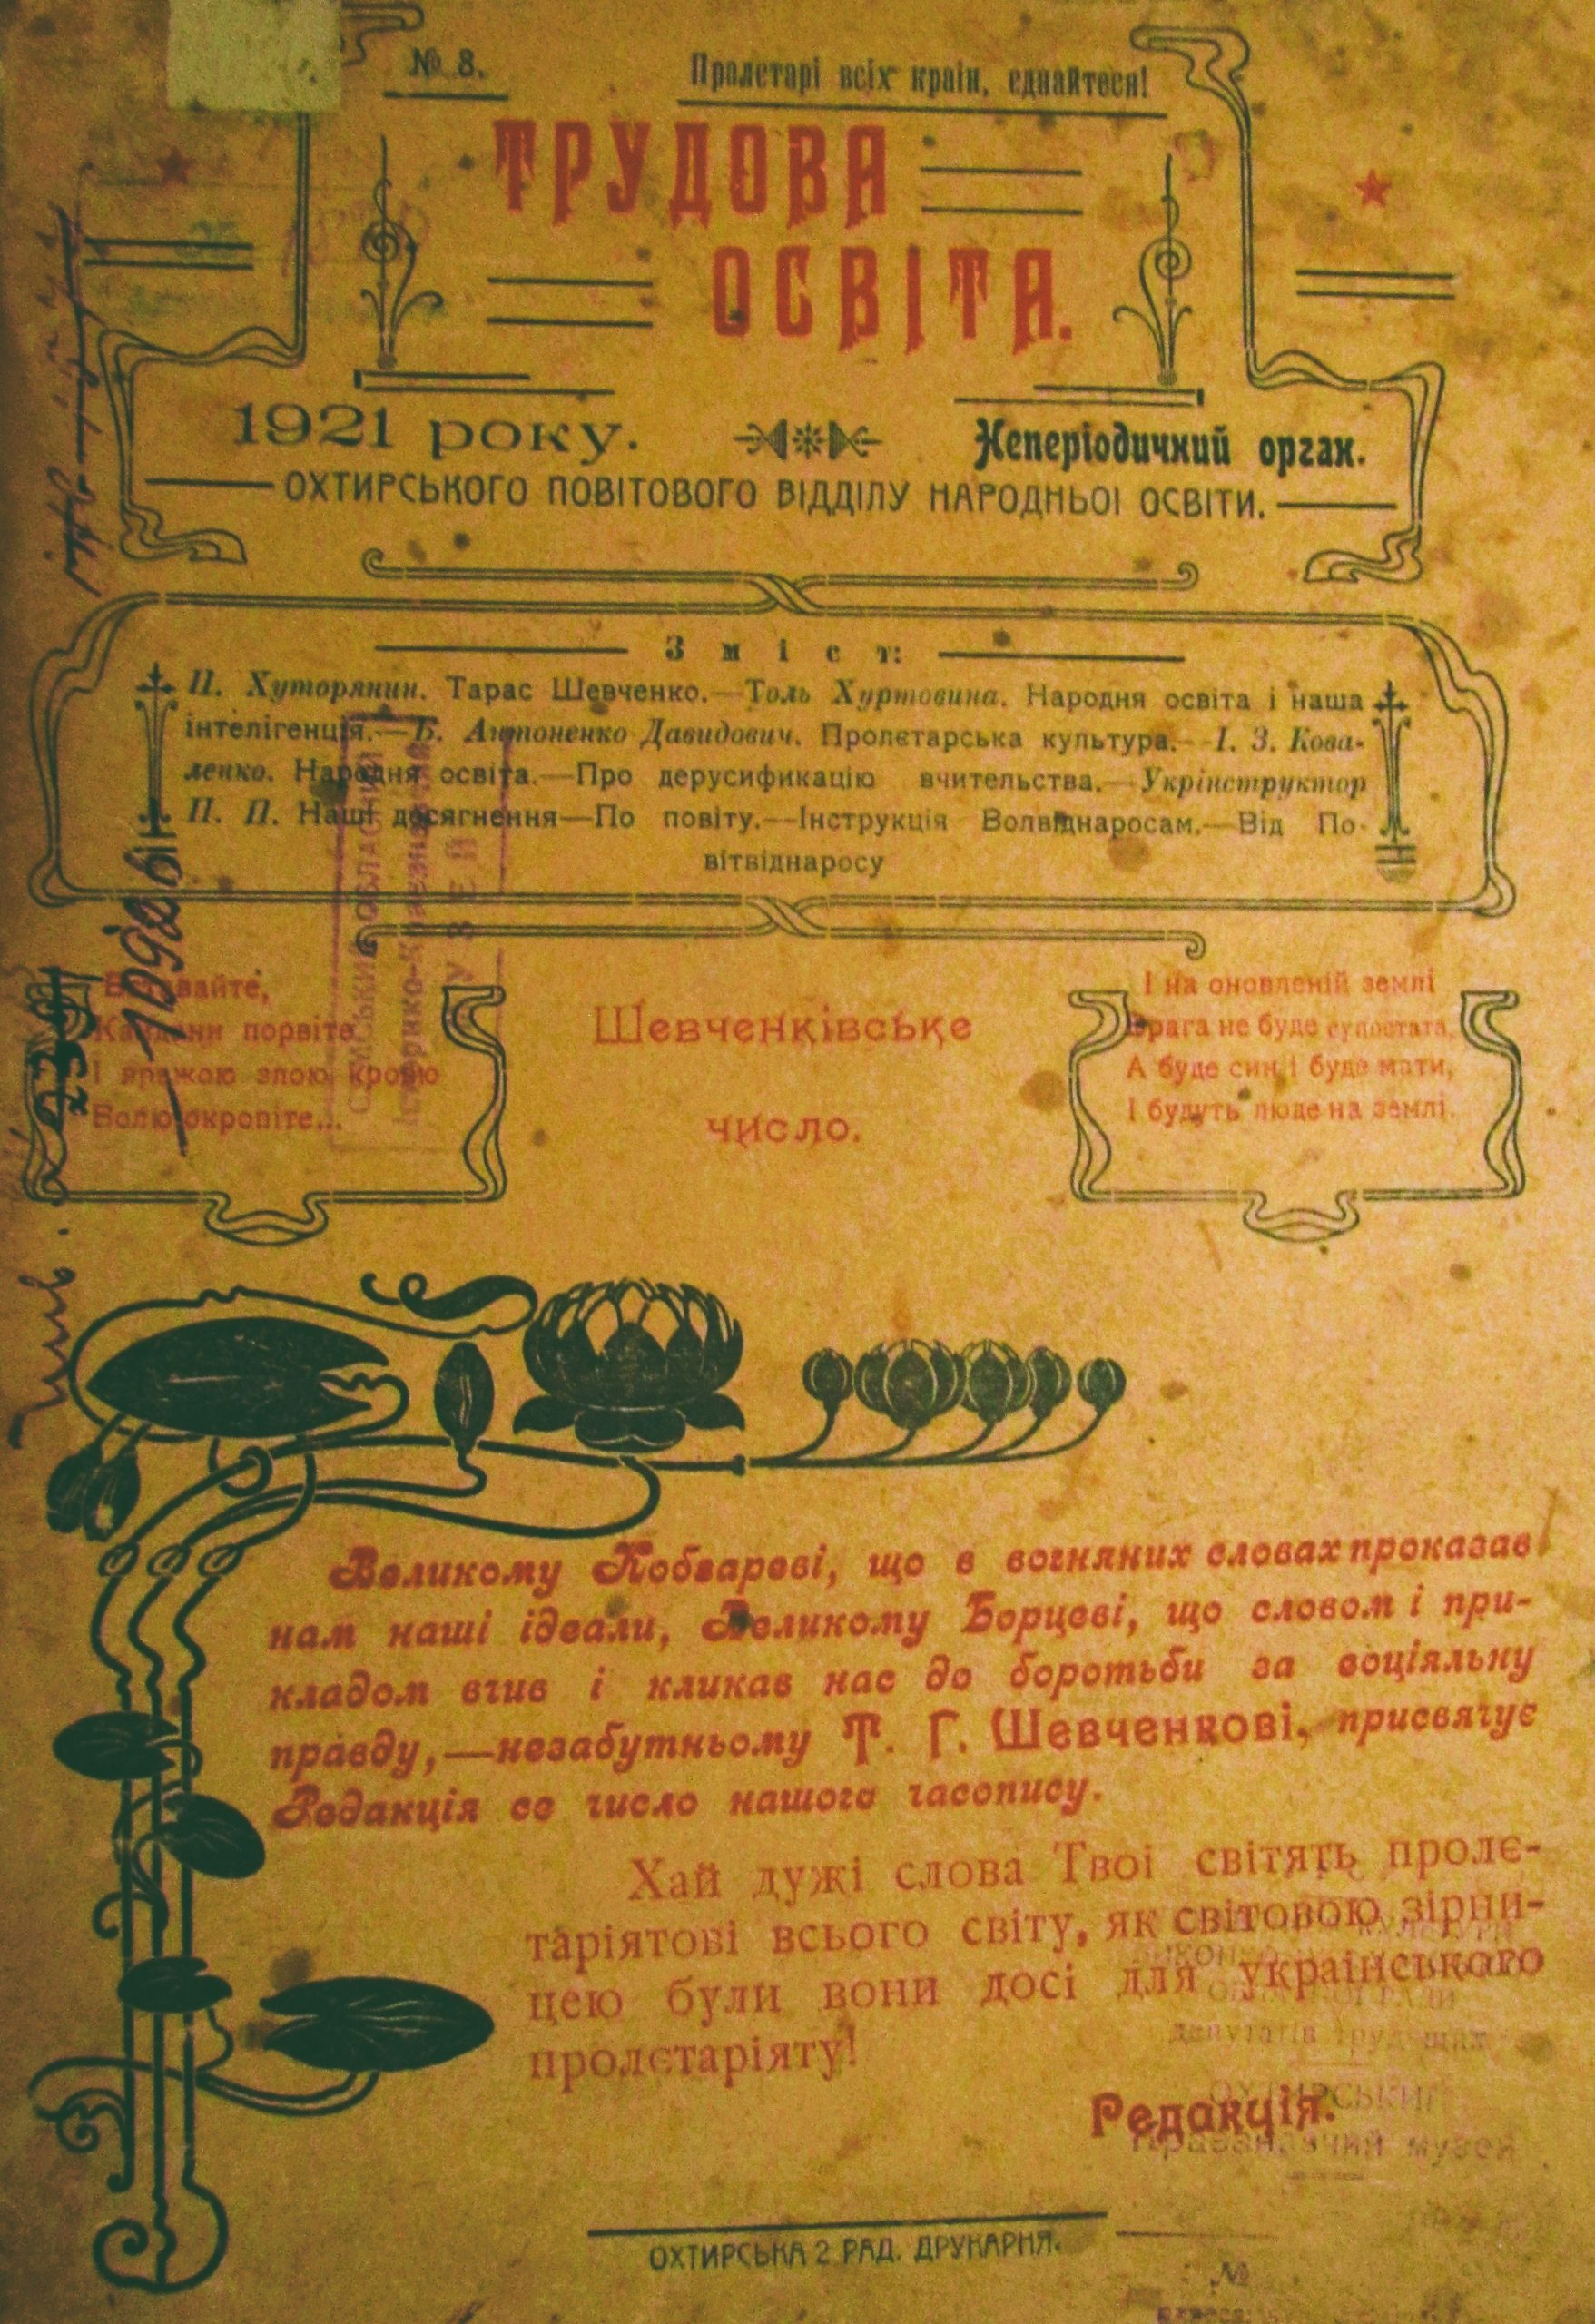 № 8.
Пролетарі всіх краін, єднайтеся!
ТРУДОВА
ОСВІТА.
1921 року.
Неперіодичний орган.
ОХТИРСЬКОГО ПОВІТОВОГО ВІДДІЛУ НАРОДНЬОІ ОСВІТИ.
Зміст:
П. Хуторянин. Тарас Шевченко.—Толь Хуртовина. Народня освіта і наша
інтелігенція.—Б. Антоненко Давидович. Пролєтарська культура.—І. З. Кова-
ленко. Народня освіта.—Про дерусификацію вчительства.—Укрінструктор
П. П. Наші досягнення—По повіту.—Інструкція Волвіднаросам.—Від По-
вітвіднаросу
Вставайте,
Кайдани порвіте
І вражою злою кровю
Волю окропіте...
Шевченківське
число.
І на оновленій землі
Врага не буде супостата,
А буде син, і буде мати,
І будуть люде на землі.
Великому Кобзареві, що в вогняних словах проказав
нам наші ідеали, Великому Борцеві, що словом і при-
кладом вчив і кликав нас до боротьби за соціяльну
правду,—незабутньому Т. Г. Шевченкові, присвячує
Редакція се число нашого часопису.
Хай дужі слова Твоі світять пролє-
таріятові всього світу, як світовою зірни-
цею були вони досі для украінського
пролєтаріяту!
Редакція.
ОХТИРСЬКИЙ
Краєзнавчий музей
ОХТИРСЬКА 2 РАД. ДРУКАРНЯ.
№